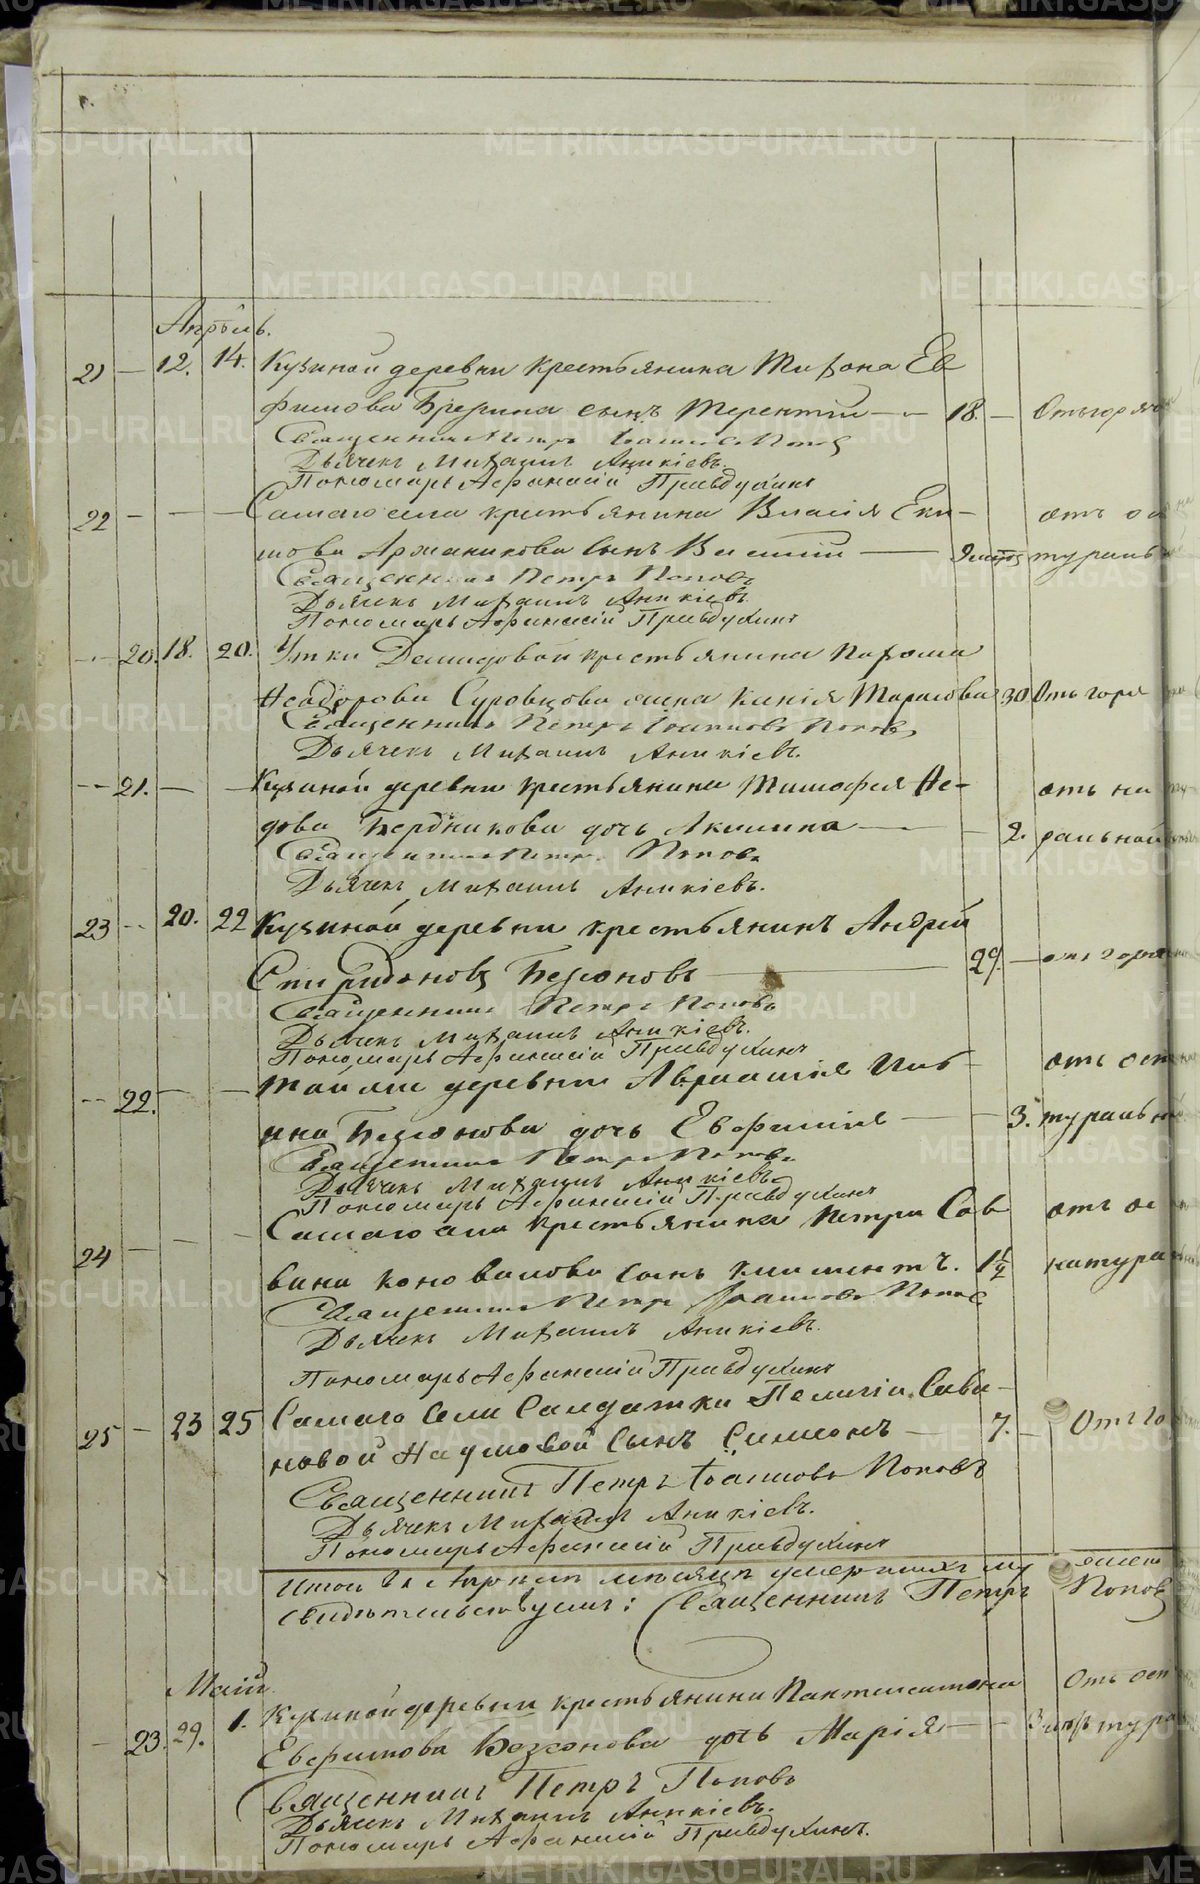 Апрѣль.
21 — 12. 14. Кузиной деревни крестьянина Тихона Ев
фимова Брезгина сынъ Терентій — 18. — Отъ горяч
Священникъ Петръ Іоанновъ Поповъ
Дьячекъ Михаилъ Аникіевъ.
Пономарь Афанасій Правдухинъ
22 — — — Самаго села крестьянина Власія Еки- отъ
мова Аржаникова сынъ Василій — туральн
Священникъ Петръ Поповъ
Дьячекъ Михаилъ Аникіевъ.
Пономарь Афанасій Правдухинъ
— 20. 18. 20. Утки Демидовой крестьянина
Суровцова жена Тарасова 30. Отъ горя
Священникъ Петръ Іоанновъ Поповъ
Дьячекъ Михаилъ Аникіевъ.
— 21. — — Кузиной деревни крестьянина Тимофея Не- отъ на
дова Бердникова дочь Акилина — — 2. ральной
Священникъ Петръ Поповъ
Дьячекъ Михаилъ Аникіевъ.
23 — 20. 22 Кузиной деревни крестьянинъ Андрей
Спиридоновъ Безсоновъ — 29. — отъ горя
Священникъ Петръ Поповъ
Дьячекъ Михаилъ Аникіевъ.
Пономарь Афанасій Правдухинъ
— 22. — — Той же деревни Авраамія отъ
Безсонова дочь Евфимія — — 3. туральн
Священникъ Петръ Поповъ
Дьячекъ Михаилъ Аникіевъ
Пономарь Афанасій Правдухинъ
24 — — — Самаго села крестьянина Петра Сав отъ ос
вина Коновалова сынъ Климентъ. 1½ натура
Священникъ Петръ Іоанновъ Поповъ
Дьячекъ Михаилъ Аникіевъ.
Пономарь Афанасій Правдухинъ
25 — 23 25 Самаго села солдатки Пелагіи Сави-
новой Наумовой сынъ Симеонъ — 7. — Отъ го
Священникъ Петръ Іоанновъ Поповъ
Дьячекъ Михаилъ Аникіевъ.
Пономарь Афанасій Правдухинъ
Итого въ Апрѣлѣ мѣсяцѣ умершихъ
свидѣтельствуемъ: Священникъ Петръ Поповъ
Маій
— 23. 29. 1. Кузиной деревни крестьянина Пантелеимона Отъ осп
Евфимова Безсонова дочь Марія — — тура
Священникъ Петръ Поповъ
Дьячекъ Михаилъ Аникіевъ.
Пономарь Афанасій Правдухинъ.
METRIKI.GASO-URAL.RU